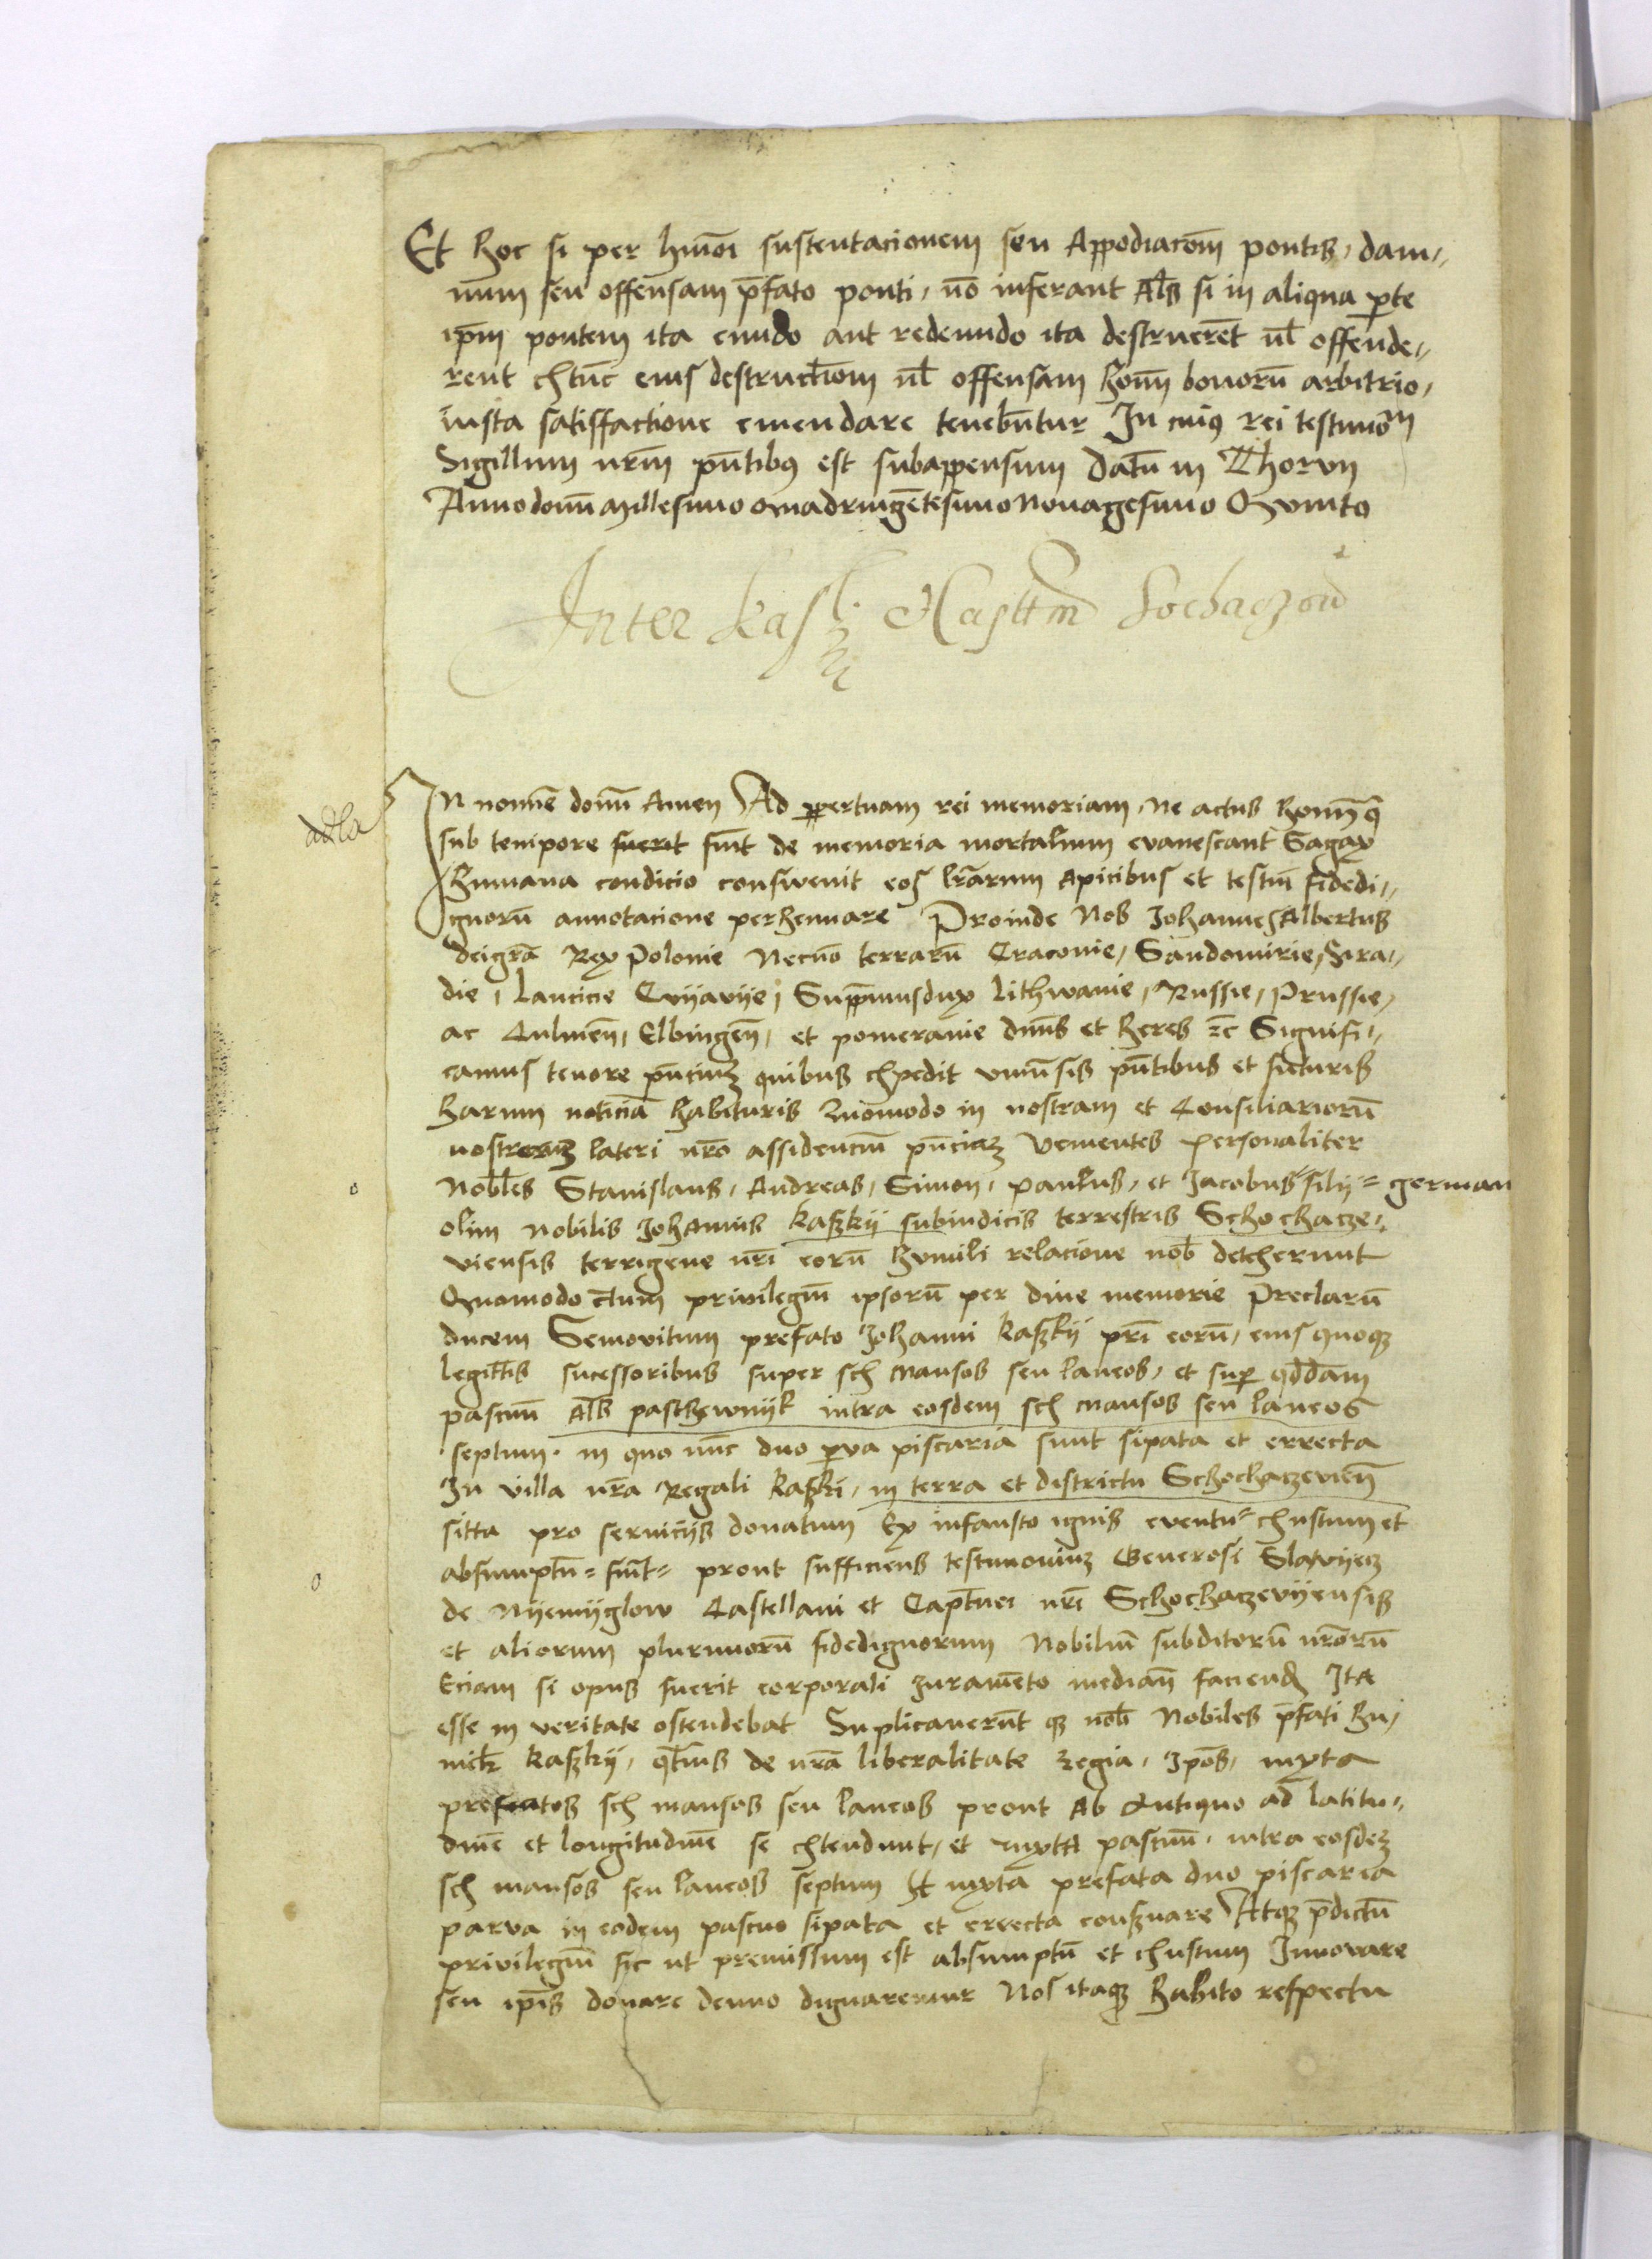 Et hoc si per hmoi sustentacionem seu Appodiacom̄ pontis, dam-
num seu offensam p̄fato ponti, nō inferant Als̄ si in aliqua parte
ip̄m pontem ita eundo aut redeundo ita destruerēt vl̄ offende-
rent extūc eius destructiom̄ vl̄ offensam hom̄ bonorū arbitrio,
iusta satisffactione emendare tenebūtur In cuius rei testimōm
Sigillum nr̄m pn̄tibus est subappensum Datū in Thorun
Anno domī Millesimo Quadringētesimo Nonagesimo Quinto
Inter Kaszki Casttm̄ Sochaczoū
adla
In nomīe domī Amen Ad perpetuam rei memoriam, Ne actus homī q̄
sub tempore fuerit fīūt de memoria mortalium evanescant Sagax
Humana condicio consvevit eos lr̄arum Apicibus et testiū fidedi-
gnorū annotacione perhennare Proinde Nos Johannes Albertus
dei grā Rex Polonie Necnō terrarū Cracovie, Sandomirie, Sira-
die, Lancicie Cuyavije, Supp̄mus dux Lithwanie, Russie, Prussie,
ac Culmeñ, Elbingeñ, et pomeranie dn̄us et heres ꝛc̄ Signifi-
camus tenore pn̄cium quibus expedit vniūsis pn̄tibus et futuris
harum noticiā habituris Quomodo in nostram et Consiliariorū
nostrorum lateri nr̄o assidenciū pn̄ciam Venientes personaliter
Nobiles Stanislaus, Andreas, Simon, Paulus, et Jacobus filij german
olim nobilis Johannis Kaszkij subiudicis terrestris Schochacze-
viensis terrigene nr̄i eorū humili relacione nob̄ detexerunt
Quomodo c̄tum privilegiū ipsorū per dive memorie Preclarū
ducem Semovitum prefato Johanni Kaszkij pr̄i eorū, eius quoque
legitt̄is sucessoribus super sex mansos seu laneos, et sup̄ qd̄dam
pascuū als̄ pasthewnijk intra eosdem sex mansos seu laneos
septum, in quo nūc duo p̄va piscaria sunt sipata et errecta
In villa nr̄a Regali Kaszki, in terra et districtu Schochaczevieñ
sitta pro servicijs donatum Ex infausto ignis eventu exustum et
absumptū fuit prout sufficiens testimonium Generosi Slavijecz
de Nijemijglow Castellani et Capt̄nei nr̄i Schochaczevijensis
et aliorum plurimorū fidedignorum Nobiliū subditorū nr̄orū
Eciam si opus fuerit corporali Juramēto mediañ faciend̄ Ita
esse in veritate ostendebat Suplicaverūt que nob̄ Nobiles p̄fati hu-
mil̄r Kaszkij, q̄t̄nus de nr̄a liberalitate regia, Ipōs, iuxta
prefatos sex mansos seu laneos prout Ab Antiquo ad latitu-
dinē et longitudinē se extendunt, et iuxta pascuū, intra eosdem
sex mansos seu laneos septum Et iuxta prefata duo piscaria
parva in eodem pascuo sipata et errecta conservare Atque p̄dictū
privilegiū sic ut premissum est absumptū et exustum Innovare
seu ip̄is donare denuo dignaremur Nos itaque habito respectu